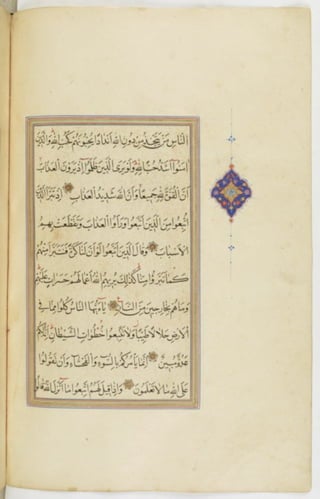 النَّاسِ مَنْ يَتَّخِذُ مِنْ دُونِ اللهِ اَنْدَادًا يُحِبُّونَهُمْ كَحُبِّ اللهِ وَالَّذِينَ
اٰمَنُوا اَشَدُّ حُبًّا لِلهِ وَلَوْ يَرَى الَّذِينَ ظَلَمُوا اِذْ يَرَوْنَ الْعَذَابَ
اَنَّ الْقُوَّةَ لِلهِ جَمِيعًا وَاَنَّ اللهَ شَدِيدُ الْعَذَابِ اِذْ تَبَرَّاَ الَّذِينَ
اتُّبِعُوا مِنَ الَّذِينَ اتَّبَعُوا وَرَاَوُا الْعَذَابَ وَتَقَطَّعَتْ بِهِمُ
الْاَسْبَابُ وَقَالَ الَّذِينَ اتَّبَعُوا لَوْ اَنَّ لَنَا كَرَّةً فَنَتَبَرَّاَ مِنْهُمْ
كَمَا تَبَرَّءُوا مِنَّا كَذٰلِكَ يُرِيهِمُ اللهُ اَعْمَالَهُمْ حَسَرَاتٍ عَلَيْهِمْ
وَمَا هُمْ بِخَارِجِينَ مِنَ النَّارِ يَا اَيُّهَا النَّاسُ كُلُوا مِمَّا فِي
الْاَرْضِ حَلَالًا طَيِّبًا وَلَا تَتَّبِعُوا خُطُوَاتِ الشَّيْطَانِ اِنَّهُ لَكُمْ
عَدُوٌّ مُبِينٌ اِنَّمَا يَاْمُرُكُمْ بِالسُّوءِ وَالْفَحْشَاءِ وَاَنْ تَقُولُوا
عَلَى اللهِ مَا لَا تَعْلَمُونَ وَاِذَا قِيلَ لَهُمُ اتَّبِعُوا مَا اَنْزَلَ اللهُ قَالُوا